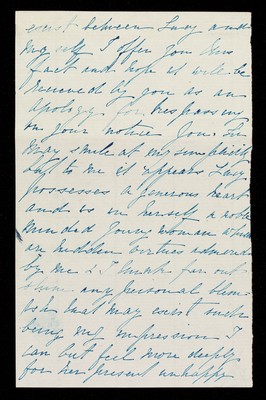 exist between Lucy and
myself I offer you this
fact and hope it will be
received by you as an
apology for trespassing
on your notice You Sir
may smile at my simplicity
but to me it appears Lucy
possesses a generous heart
and is in herself a noble
minded young woman whose
hidden virtues admired
by me I think far out
shine any personal blem
ish that may exist such
being my impression I
can but feel more deeply
for her present unhappy